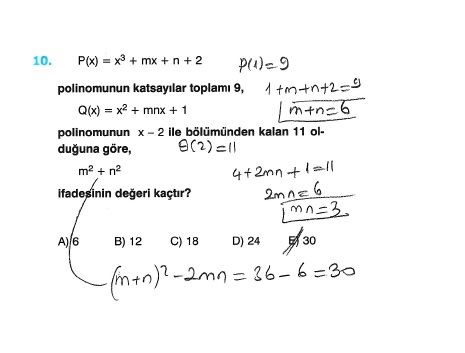 10. P(x) = x³ + mx + n + 2 P(1)=9
polinomunun katsayılar toplamı 9, 1+m+n+2=9
Q(x) = x² + mnx + 1 m+n=6
polinomunun x – 2 ile bölümünden kalan 11 ol-
duğuna göre, Q(2)=11
m² + n² 4+2mn+1=11
ifadesinin değeri kaçtır? 2mn=6
mn=3
A) 6 B) 12 C) 18 D) 24 E) 30
(m+n)²-2mn=36-6=30